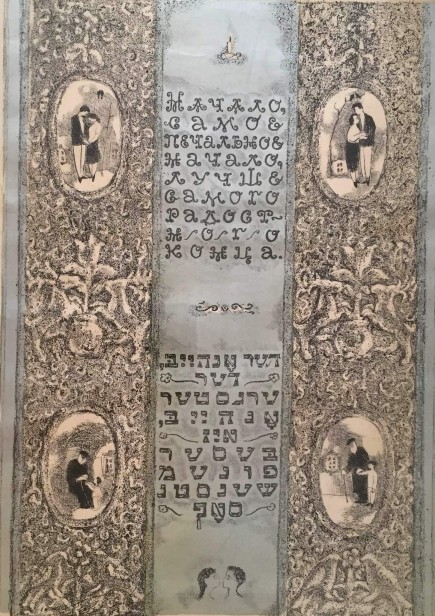 Начало,
самое
печальное
начало,
лучше
самого
радост-
ного
конца.
דער אָנהייב,
דער
ערנסטער
אָנהייב,
איז
בעסער
פונעם
שענסטן
סאָף